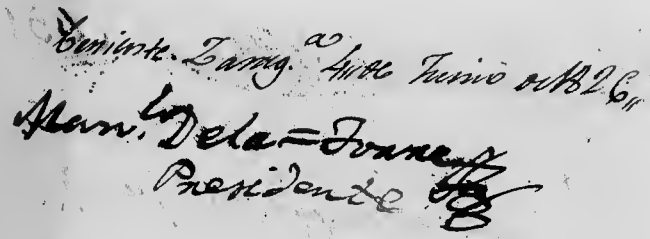 teniente. Zarag.ª 4,, de Junio de 1826,,
Man.l Dela=
Presidente